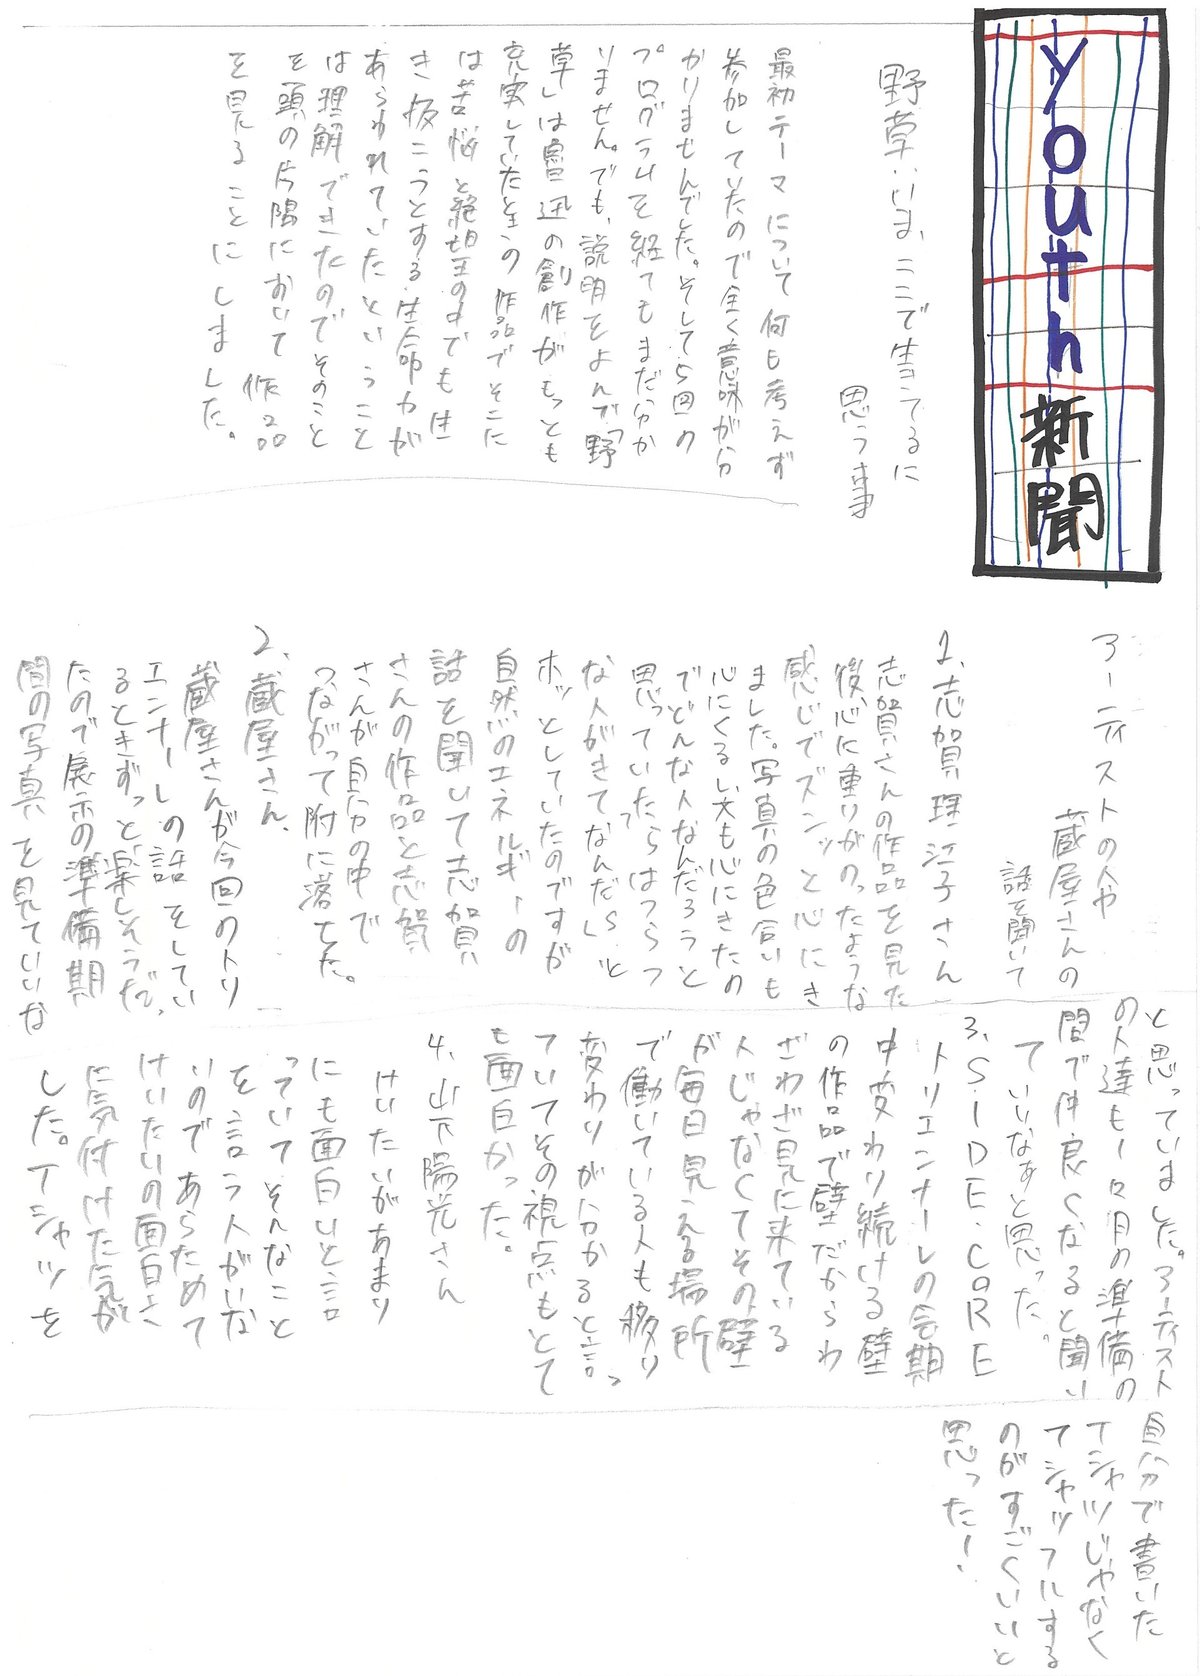 youth新聞
野草：いま、ここで生きてるに
思う事
最初テーマについて何も考えず
参加していたので全く意味が分
かりませんでした。そして5回の
プログラムを経てもまだ分か
りません。でも、説明をよんで「野
草」は魯迅の創作がもっとも
充実していたときの作品でそこに
は苦悩と絶望の中でも生
き抜こうとする生命力が
あらわれていたということ
は理解できたのでそのこと
を頭の片隅において作品
を見ることにしました。
アーティストの人や
蔵屋さんの
話を聞いて
1、志賀理江子さん
志賀さんの作品を見た
後、心に重りがのったような
感じでズンッと心にき
ました。写真の色合いも
心にくるし、文も心にきたの
でどんな人なんだろうと
思っていたら「はつらつ
な人がきてなんだS」と
ホッとしていたのですが
自然のエネルギーの
話を聞いて志賀
さんの作品と志賀
さんが自分の中で
つながって附に落ちた。
2、蔵屋さん、
蔵屋さんが今回のトリ
エンナーレの話をしてい
るときずっと楽しそうだっ
たので展示の準備期
間の写真を見ていいな
と思っていました。アーティスト
の人達も1ヶ月の準備の
間で仲良くなると聞い
ていいなぁと思った。
3、SIDE CORE
トリエンナーレの会期
中変わり続ける壁
の作品で壁だからわ
ざわざ見に来ている
人じゃなくてその壁
が毎日見える場所
で働いている人も移り
変わりが分かると言っ
ていてその視点もとて
も面白かった。
4、山下陽光さん
けいたいがあまり
にも面白いと言
っていてそんなこと
を言う人がいな
いのであらためて
けいたいの面白さ
に気付けた気が
した。Tシャツを
自分で書いた
Tシャツじゃなく
てシャッフルする
のがすごくいいと
思った！